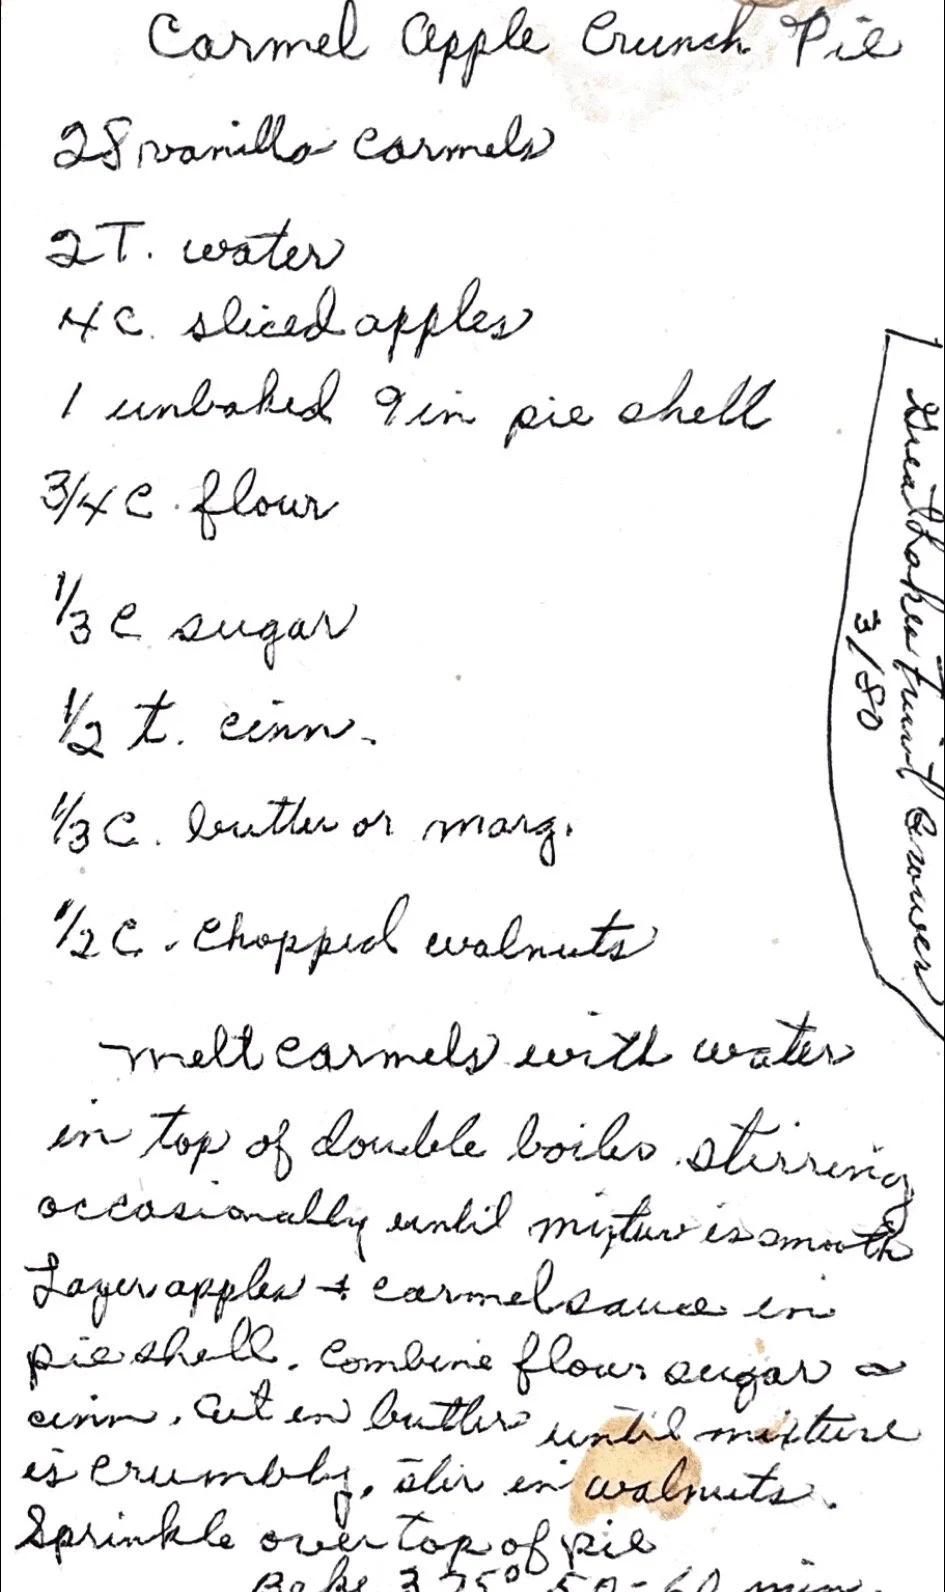 Carmel Apple Crunch Pie
28 vanilla carmels
2 T. water
4 C. sliced apples
1 unbaked 9 in pie shell
3/4 C. flour
1/3 C sugar
1/2 t. cinn.
1/3 C. butter or marg.
1/2 C. chopped walnuts
melt carmels with water
in top of double boiler stirring
occasionally until mixture is smooth
Layer apples + carmel sauce in
pie shell. Combine flour sugar &
cinn. Cut in butter until mixture
is crumbly. Stir in walnuts.
Sprinkle over top of pie
Bake 375° 50-60 min.
Great Lakes Fruit Grower
3/80